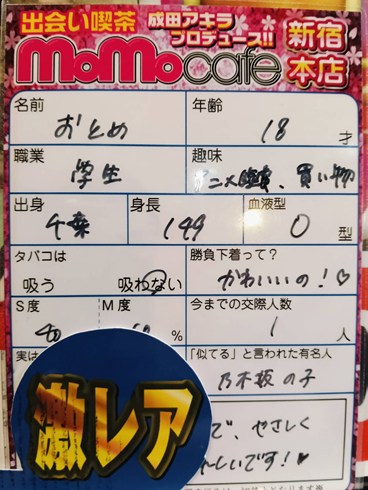 出会い喫茶 成田アキラ
プロデュース!! 新宿
本店
MoMocafe
名前 おとめ
年齢 18 才
職業 学生
趣味 アニメ鑑賞、買い物
出身 千葉
身長 149
血液型 O 型
タバコは
吸う 吸わない
勝負下着って?
かわいいの!♡
S度 M度
%
今までの交際人数
1 人
実は
「似てる」と言われた有名人
乃木坂の子
激レア
で、やさしく
しいです!♡